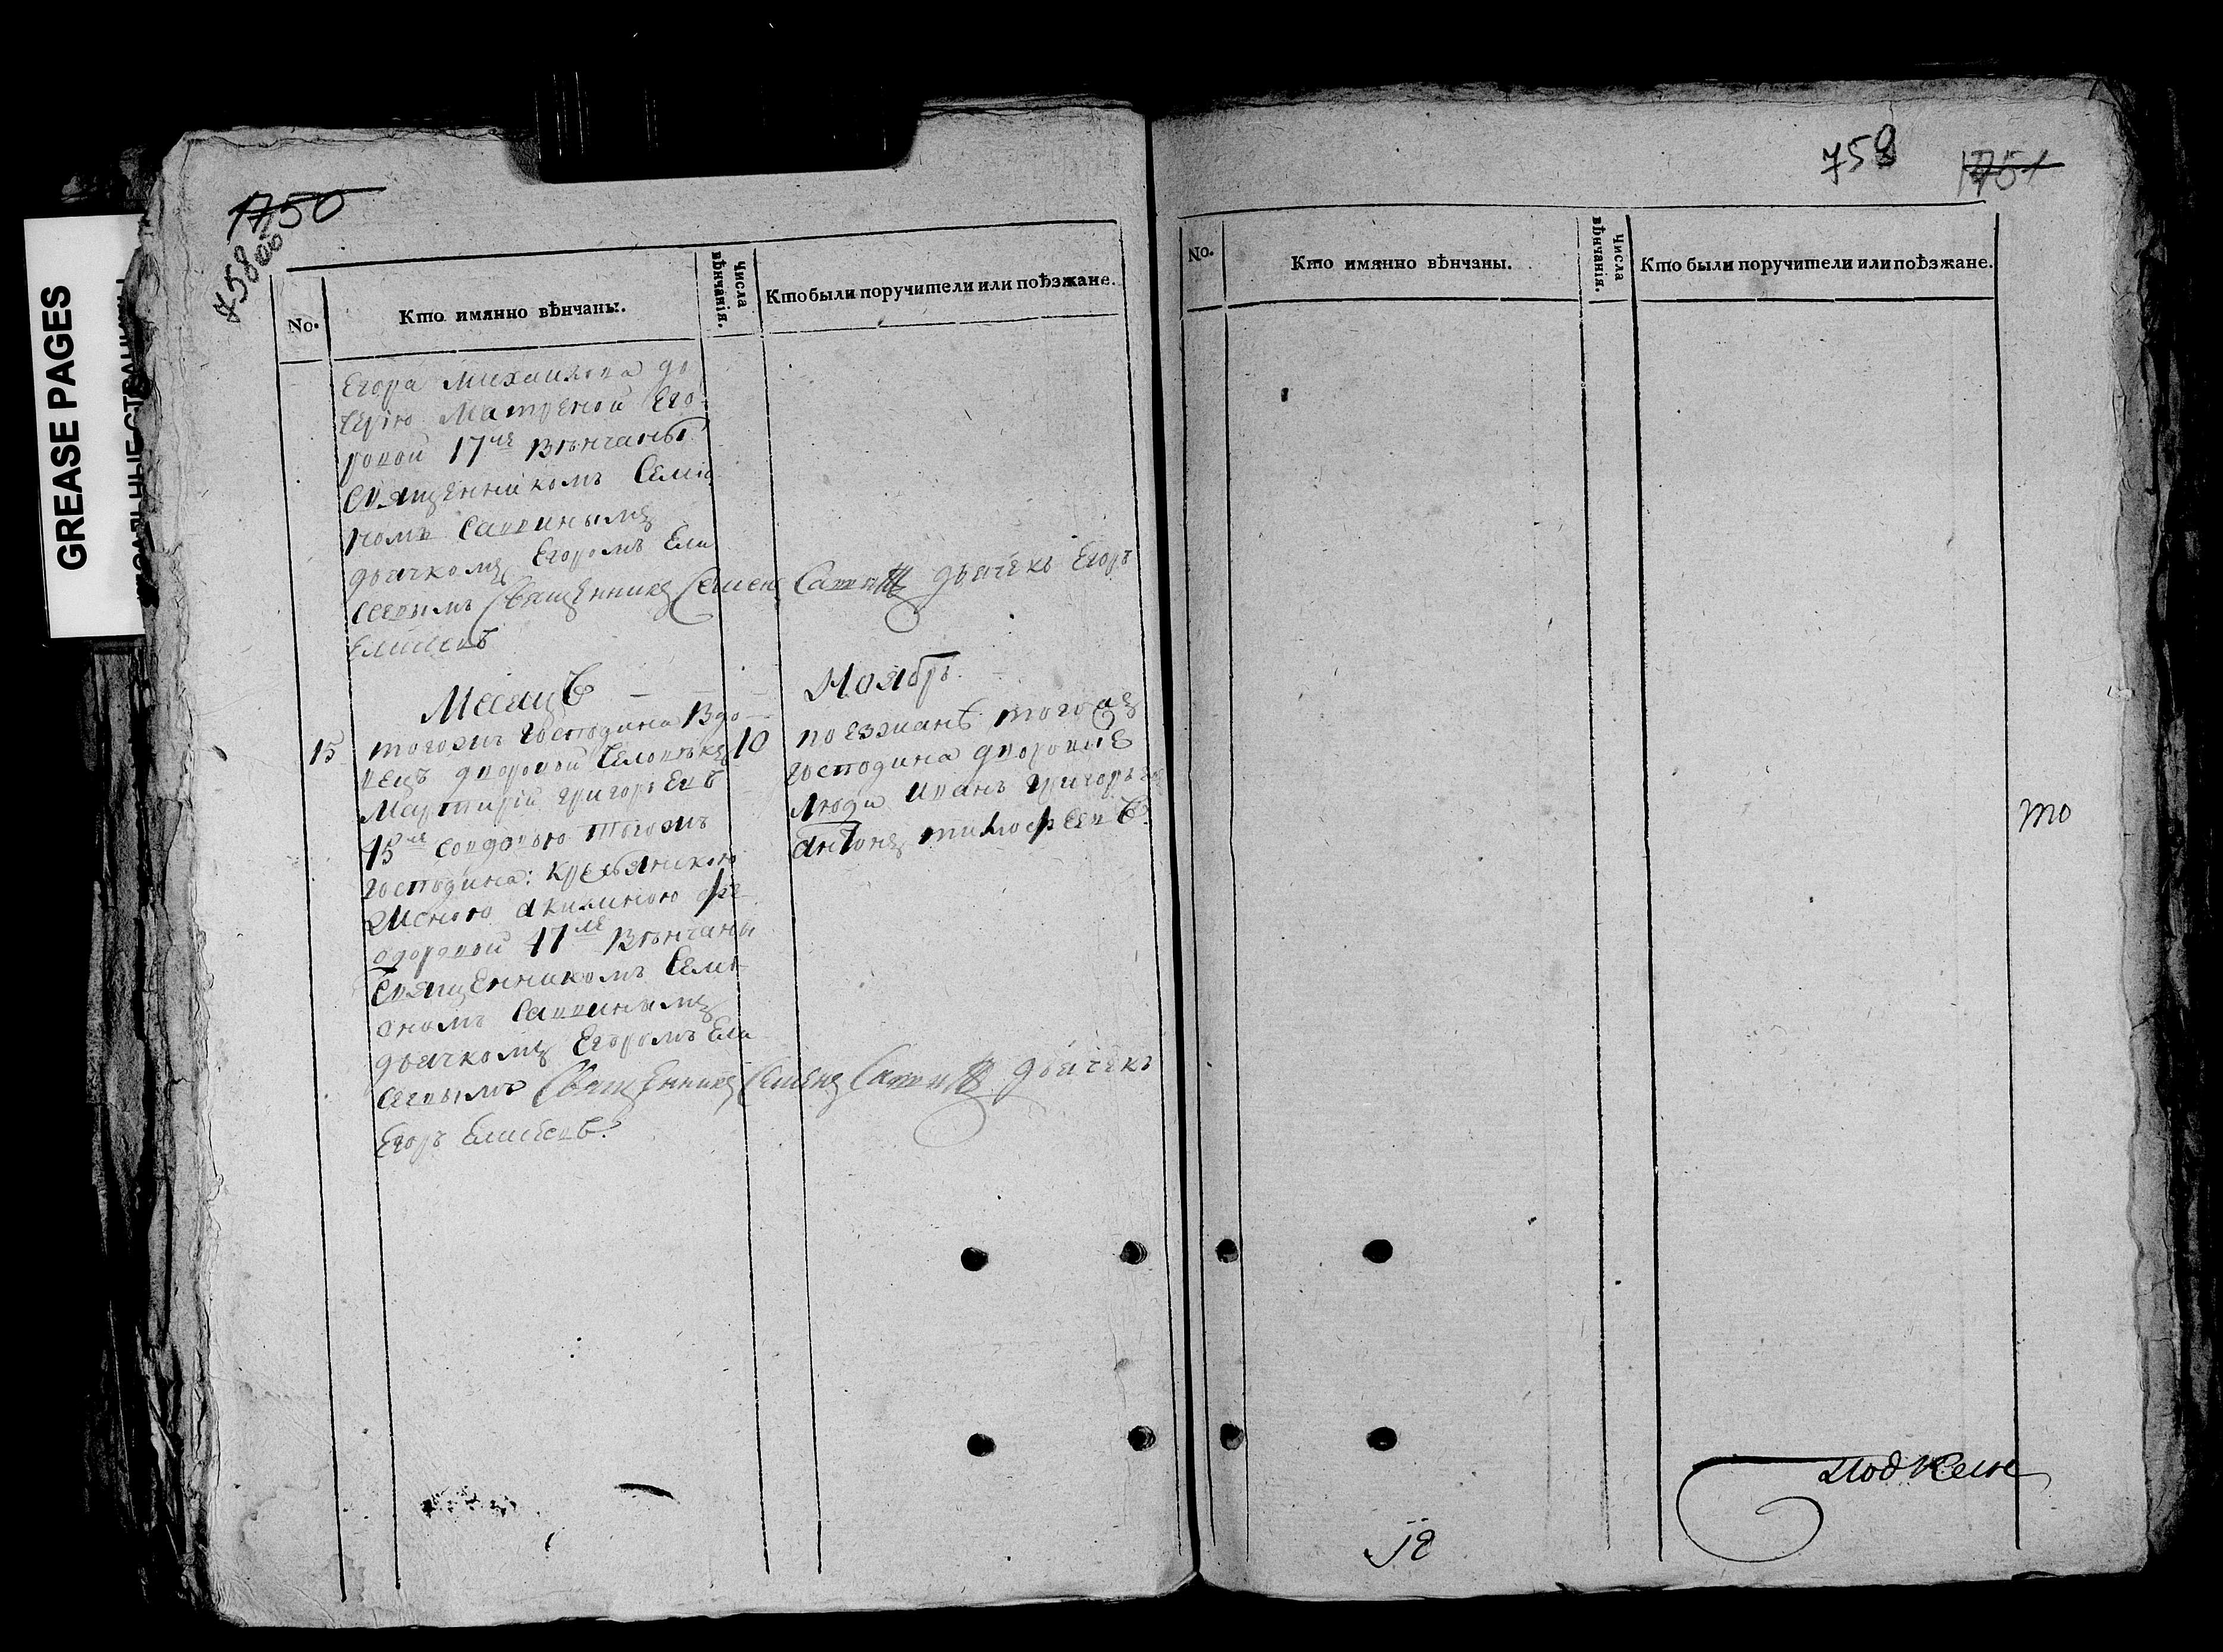 GREASE PAGES
1750
758об
No.
Кто имянно вѣнчаны.
Числа вѣнчанія.
Кто были поручители или поѣзжане.
Егора Михаилова до
черію Матреной Его
ровой 17 ле вѣнчаны
священникомъ Семіо
номъ Саввинымъ
дьячкомъ Егоромъ Ели
сеевымъ Священникъ Семенъ Саввинъ дьячекъ Егоръ
Елисеевъ
Месяцъ Ноябрь
15 тогожъ господина вдо 10
вецъ дворовой человѣкъ
Мартирій Григорьевъ
45 ле совдовою тогожъ
господина: кресьянкою
женою Акилиною фе
одоровой 47 ле вѣнчаны
священникомъ Семі
ономъ Саввинымъ
дьячкомъ Егоромъ Ели
сеевымъ Священникъ Семенъ Саввинъ дьячекъ
Егоръ Елисеевъ.
поезжанѣ тогожъ
господина дворовые
люди Иванъ Григорьев
антонъ тимофеевъ.
758
1751
No.
Кто имянно вѣнчаны.
Числа вѣнчанія.
Кто были поручители или поѣзжане.
то